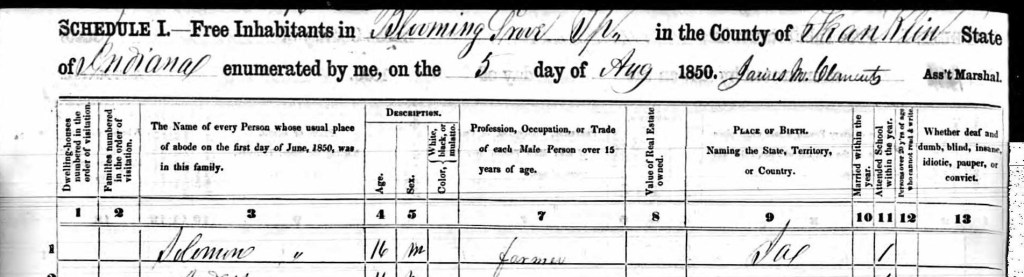 SCHEDULE I.—Free Inhabitants in Blooming Grove Tp. in the County of Franklin State
of Indiana enumerated by me, on the 5 day of Aug 1850. James M. Clements Ass't Marshal.
Dwelling-houses numbered in the order of visitation.
Families numbered in the order of visitation.
The Name of every Person whose usual place of abode on the first day of June, 1850, was in this family.
DESCRIPTION.
Age.
Sex.
Color, White, black, or mulatto.
Profession, Occupation, or Trade of each Male Person over 15 years of age.
Value of Real Estate owned.
PLACE OF BIRTH.
Naming the State, Territory, or Country.
Married within the year.
Attended School within the year.
Persons over 20 y'rs of age who cannot read & write.
Whether deaf and dumb, blind, insane, idiotic, pauper, or convict.
1 2 3 4 5 6 7 8 9 10 11 12 13
1 Solomon " 16 m farmer 1